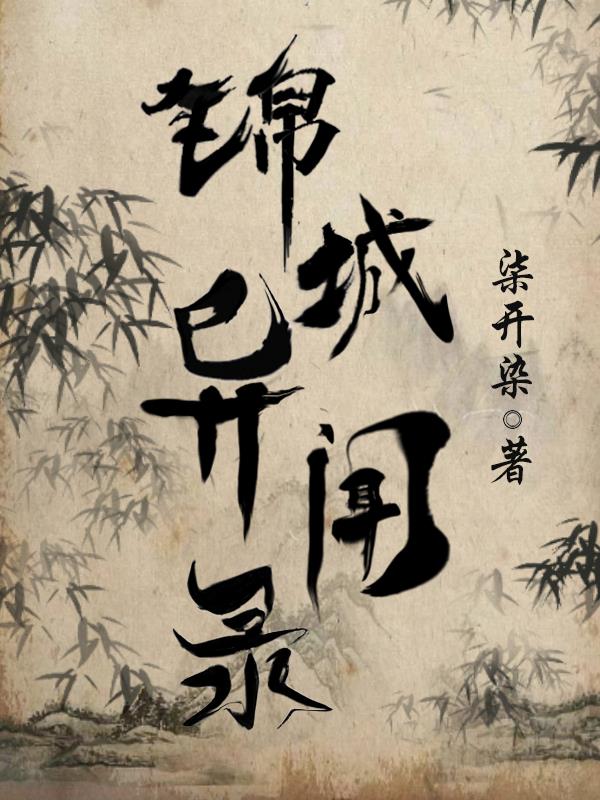 锦城异闻录
柒开染◎著